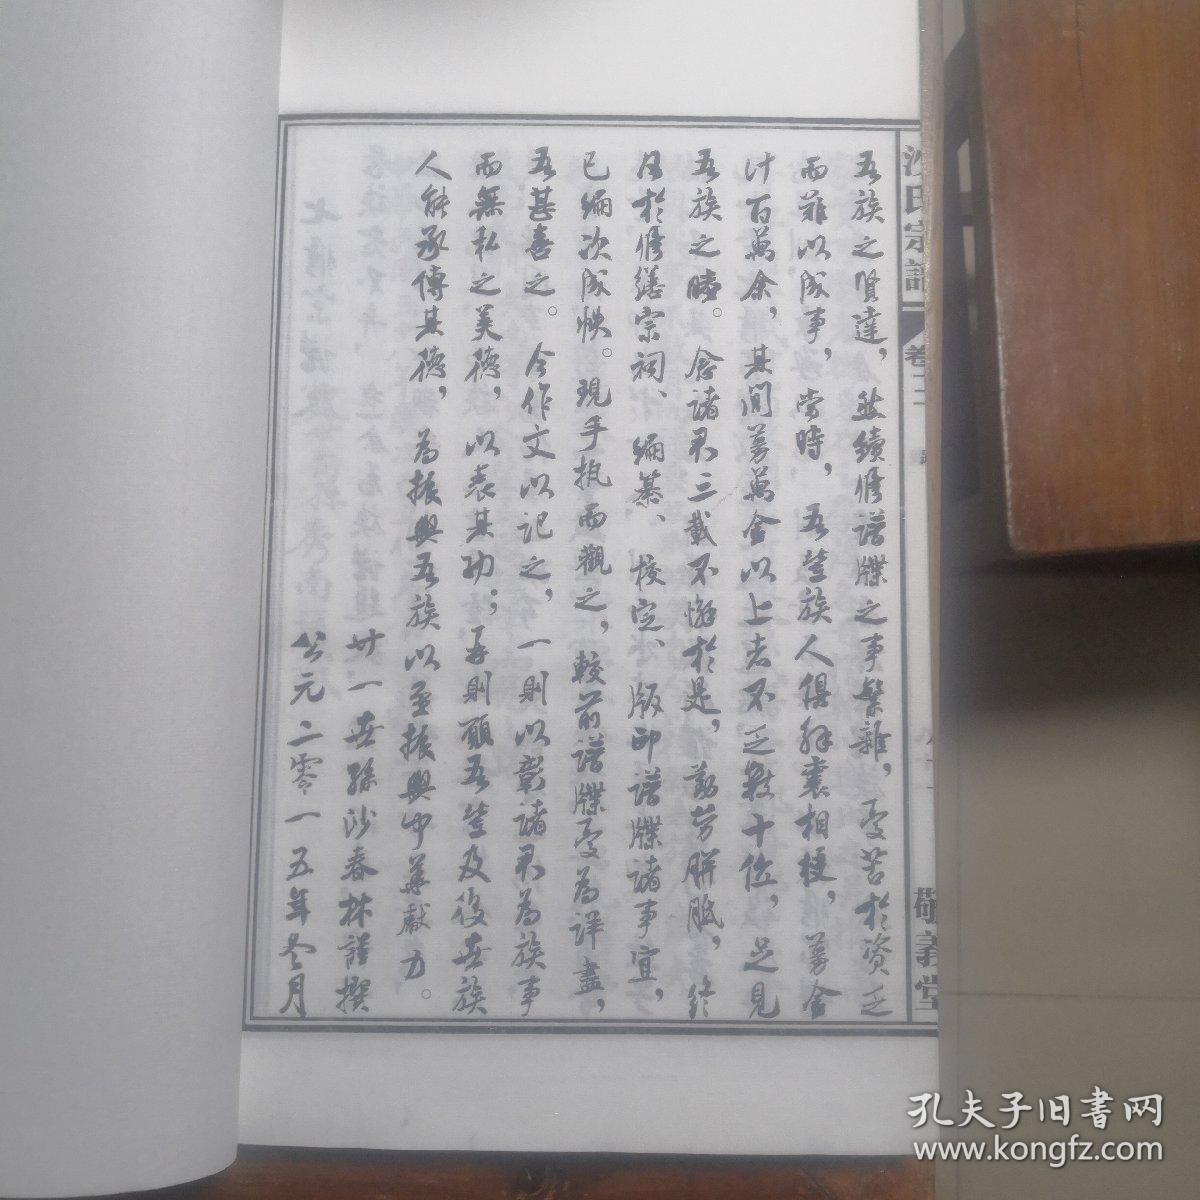 沙氏宗譜
卷二
敬義堂
吾族之賢達，然續修譜牒之事繁雜，憂苦於資乏
而難以成事，當時，吾輩族人俱解囊相梗，募金
计百萬余，其间募萬金以上者不乏數十位，足见
吾族之睦。念諸君三載不懈於是，勤勞胼胝，终
日於修缮宗祠、编纂、校定、版印譜牒諸事宜，
已编次成帙。現手执而觀之，較前譜牒更為详盡，
吾甚喜之。今作文以记之，一则以彰諸君為族事
而無私之美德，以表其功；再则願吾輩及後世族
人能承傳其德，為振興吾族以至振興中華獻力。
廿一世孫沙春林謹撰
公元二零一五年冬月
孔夫子旧书网
www.kongfz.com